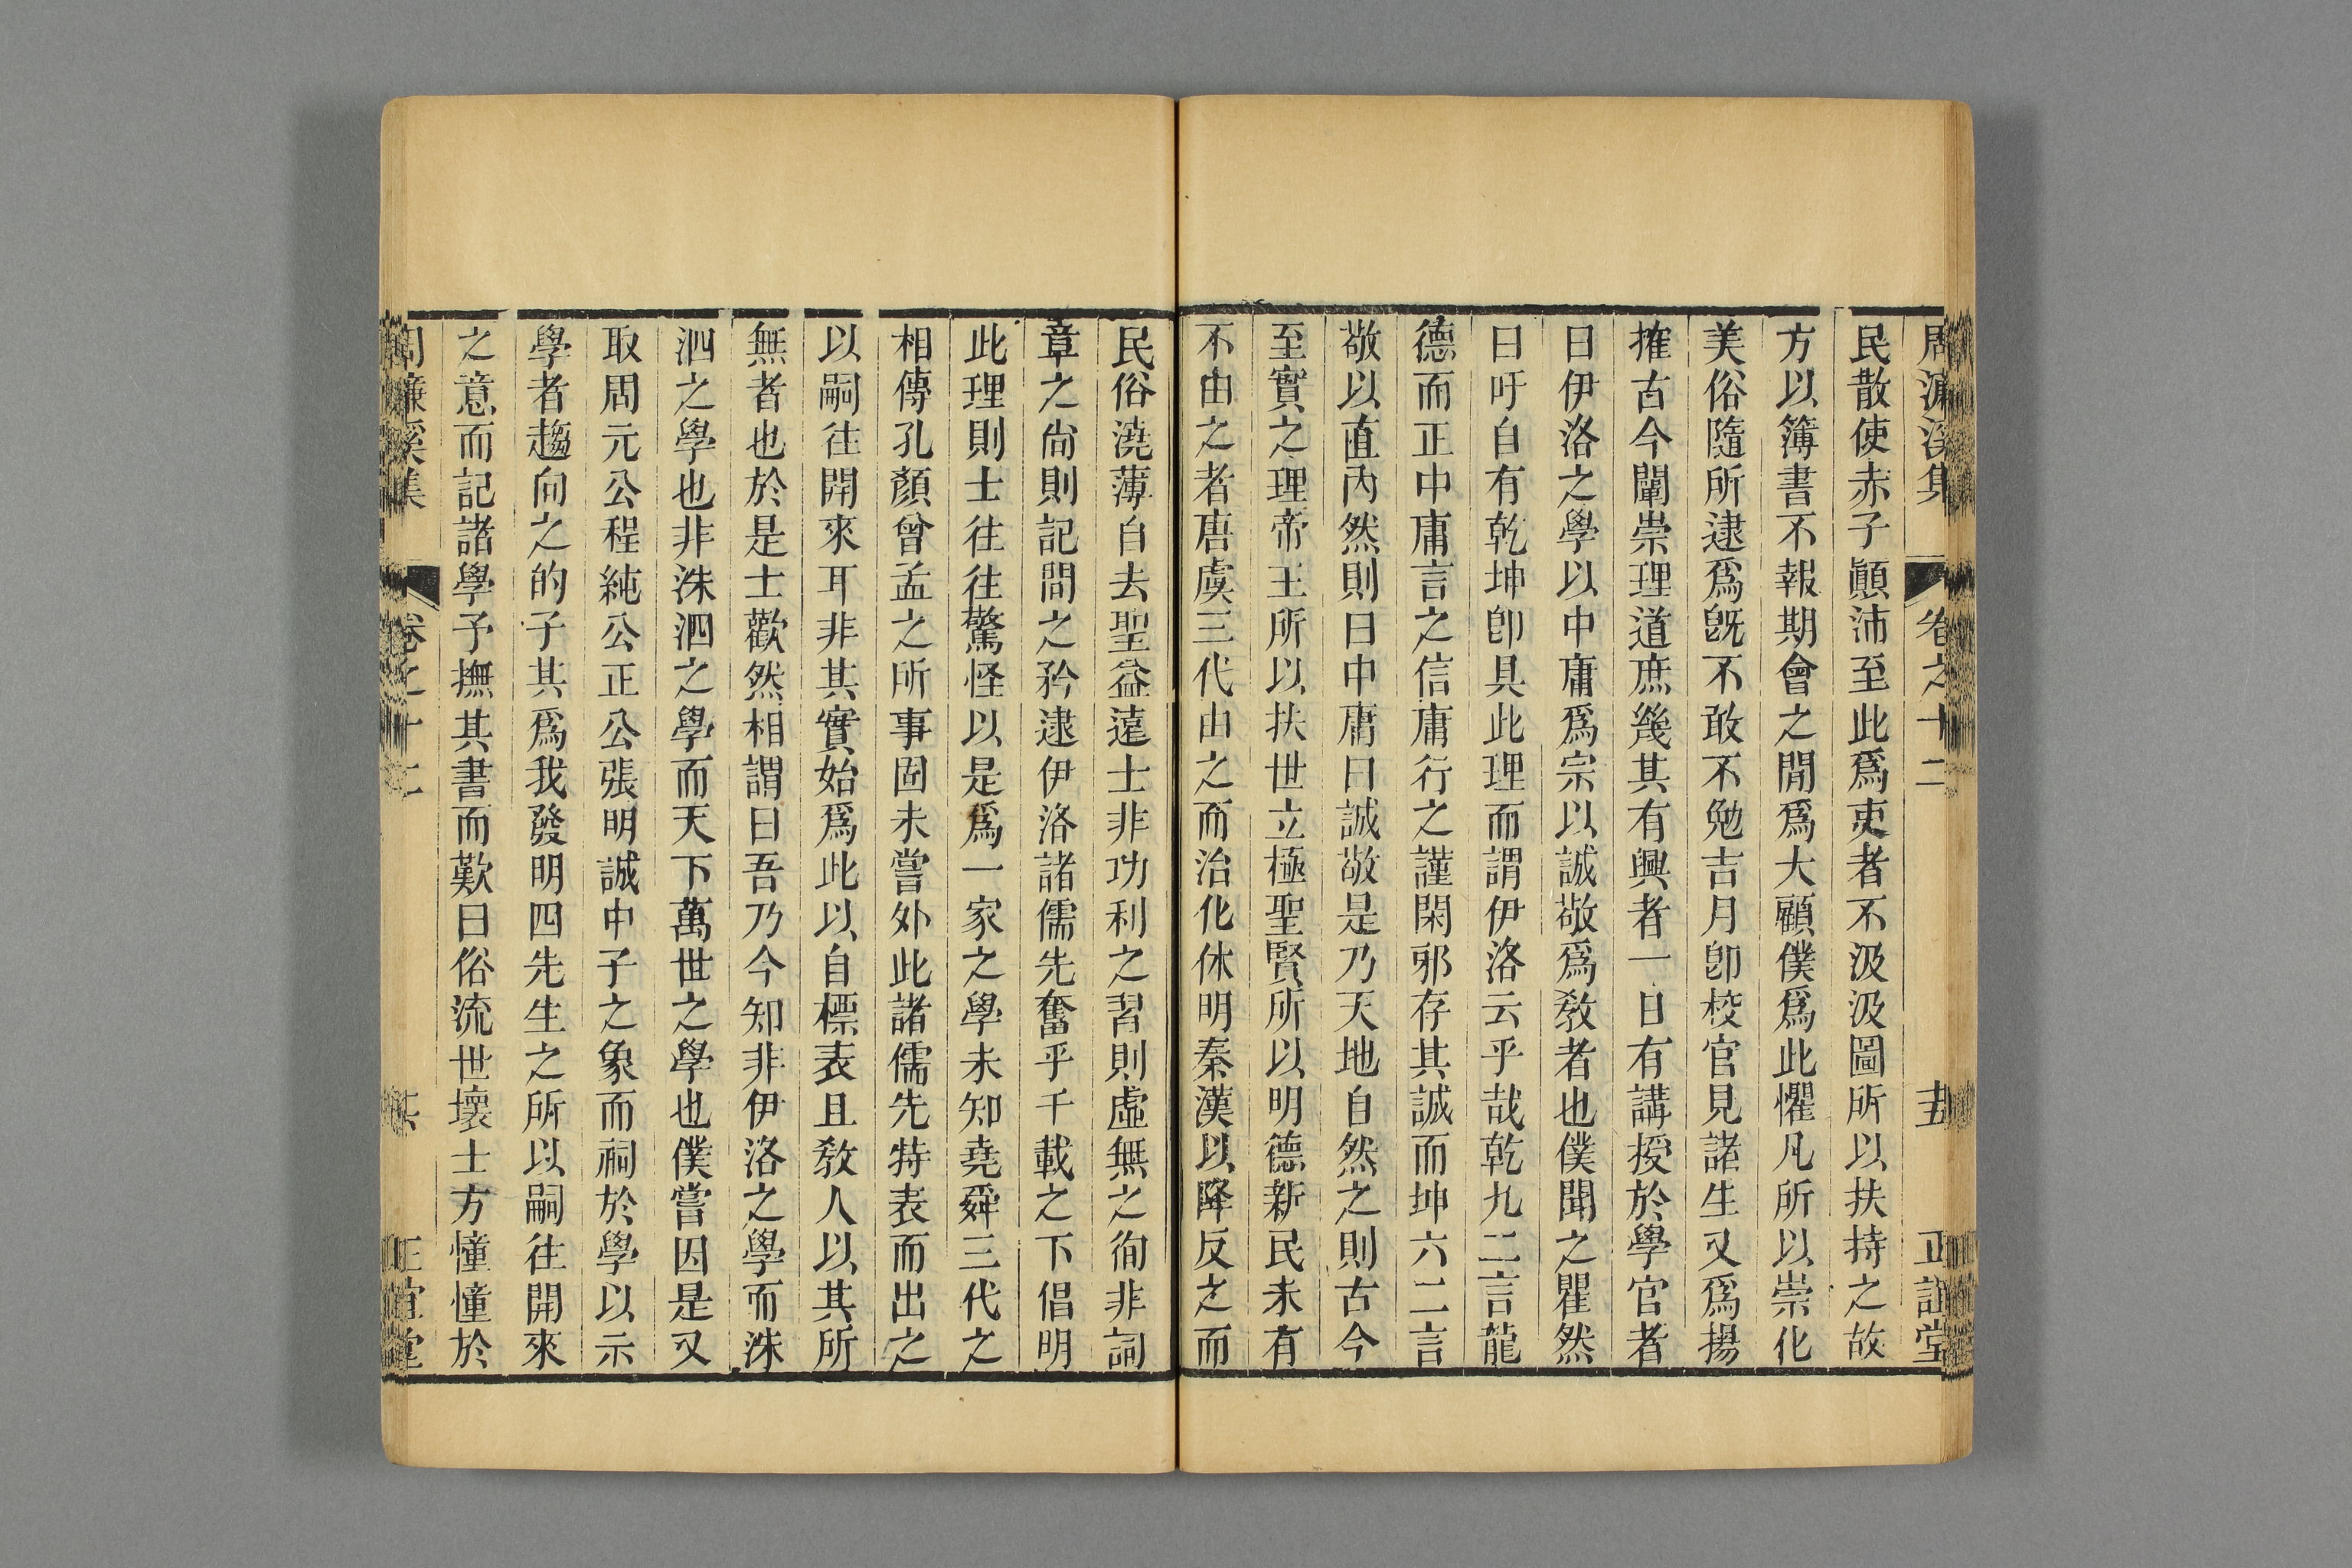 周濂溪集 卷之十二 五 正誼堂
民散使赤子顚沛至此爲吏者不汲汲圖所以扶持之故
方以簿書不報期會之閒爲大顧僕爲此懼凡所以崇化
美俗隨所逮爲旣不敢不勉吉月卽校官見諸生又爲揚
搉古今闡崇理道庶幾其有興者一日有講授於學官者
曰伊洛之學以中庸爲宗以誠敬爲敎者也僕聞之瞿然
曰吁自有乾坤卽具此理而謂伊洛云乎哉乾九二言龍
德而正中庸言之信庸行之謹閑邪存其誠而坤六二言
敬以直內然則曰中庸曰誠敬是乃天地自然之則古今
至實之理帝王所以扶世立極聖賢所以明德新民未有
不由之者唐虞三代由之而治化休明秦漢以降反之而
民俗澆薄自去聖益遠士非功利之習則虛無之徇非詞
章之尙則記問之矜逮伊洛諸儒先奮乎千載之下倡明
此理則士往往驚怪以是爲一家之學未知堯舜三代之
相傳孔顏曾孟之所事固未嘗外此諸儒先特表而出之
以嗣往開來耳非其實始爲此以自標表且敎人以其所
無者也於是士歡然相謂曰吾乃今知非伊洛之學而洙
泗之學也非洙泗之學而天下萬世之學也僕嘗因是又
取周元公程純公正公張明誠中子之象而祠於學以示
學者趨向之的子其爲我發明四先生之所以嗣往開來
之意而記諸學予撫其書而歎曰俗流世壞士方憧憧於
周濂溪集 卷之十二 正誼堂